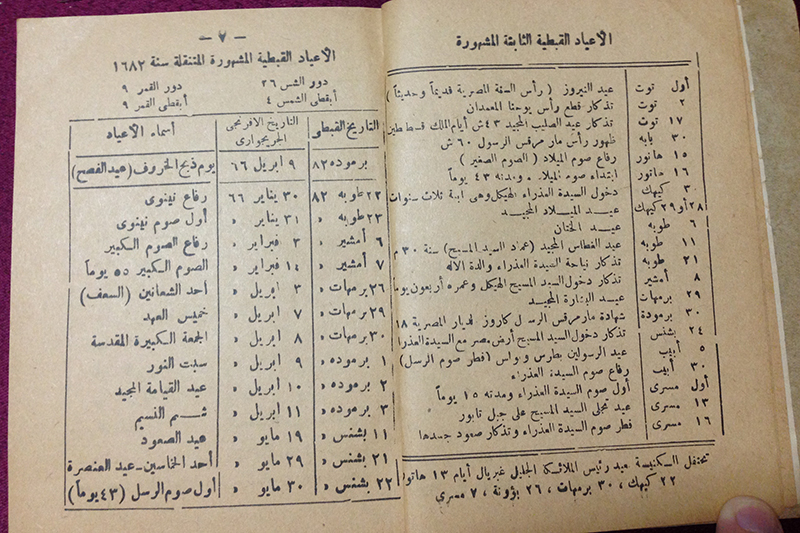 الأعياد القبطية الثابتة المشهورة
أول توت عيد النيروز ( رأس السنة المصرية قديماً وحديثاً )
٢ توت تذكار قطع رأس يوحنا المعمدان
١٧ توت تذكار عيد الصليب المجيد ٤٣ش أيام الملك قسطنطين
٣٠ بابه ظهور رأس مار مرقس الرسول ٦٠ ش
١٥ هاتور رفاع صوم الميلاد ( الصوم الصغير )
١٦ هاتور ابتداء صوم الميلاد ومدته ٤٣ يوماً
٣ كيهك دخول السيدة العذراء الهيكل وهى ابنة ثلاث سنوات
٢٨ أو ٢٩ كيهك عيــد الميــلاد المجيــد
٦ طوبه عيــد الختان
١١ طوبه عيد الغطاس المجيد (عماد السيد المسيح) سنة ٣٠ م
٢١ طوبه تذكار نياحة السيدة العذراء والدة الاله
٨ أمشير تذكار دخول السيد المسيح الهيكل وعمره أربعون يوما
٢٩ برمهات عيــد البشارة المجيــد
٣٠ برمودة شهادة مار مرقس الرسول كاروز الديار المصرية ٦٨
٢٤ بشنس تذكار دخول السيد المسيح أرض مصر مع السيدة العذراء
٥ أبيب عيد الرسولين بطرس وبولس (فطر صوم الرسل)
٣٠ أبيب رفاع صوم السيدة العذراء
أول مسرى أول صوم السيدة العذراء ومدته ١٥ يوماً
١٣ مسرى عيد تجلى السيد المسيح على جبل تابور
١٦ مسرى فطر صوم السيدة العذراء وتذكار صعود جسدها
تحتفل الكنيسة بعيد رئيس الملائكة الجليل غبريال أيام ١٣ هاتور
٢٢ كيهك ، ٣٠ برمهات ، ٢٦ بؤونة ، ٧ مسرى
— ٧ —
الأعياد القبطية المشهورة المتنقلة سنة ١٦٨٢
دور الشمس ٢٦ دور القمر ٩
أبقطى الشمس ٤ أبقطى القمر ٩
التاريخ القبطى التاريخ الافرنجى الجريجوارى أسماء الأعياد
برموده ٨٢ ٩ ابريل ٦٦ يوم ذبح الخروف (عيد الفصح)
٢٢ طوبه ٨٢ ٣٠ يناير ٦٦ رفاع نينوى
٢٣ طوبه » ٣١ يناير » أول صوم نينوى
٦ أمشير » ٣ فبراير » رفاع الصوم الكبير
٧ أمشير » ١٤ فبراير » الصوم الكبير ٥٥ يوماً
٢٦ برمهات » ٣ ابريل » أحد الشعانين (السعف)
٢٩ برمهات » ٧ ابريل » خميس العهد
٣٠ برمهات » ٨ ابريل » الجمعة الكبيرة المقدسة
١ برموده » ٩ ابريل » سبت النور
٢ برموده » ١٠ ابريل » عيد القيامة المجيد
٣ برموده » ١١ ابريل » شــم النسيم
١١ بشنس » ١٩ مايو » عيد الصعود
٢١ بشنس » ٢٩ مايو » أحد الخماسين - عيد العنصرة
٢٢ بشنس » ٣٠ مايو » أول صوم الرسل (٤٣ يوماً)